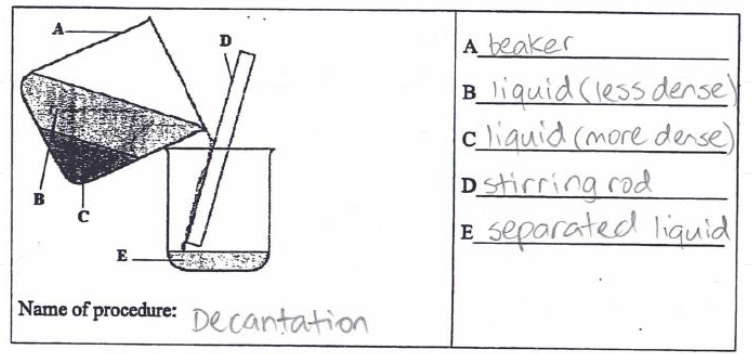 A
D
B
C
E
Name of procedure: Decantation
A beaker
B liquid (less dense)
C liquid (more dense)
D stirring rod
E separated liquid